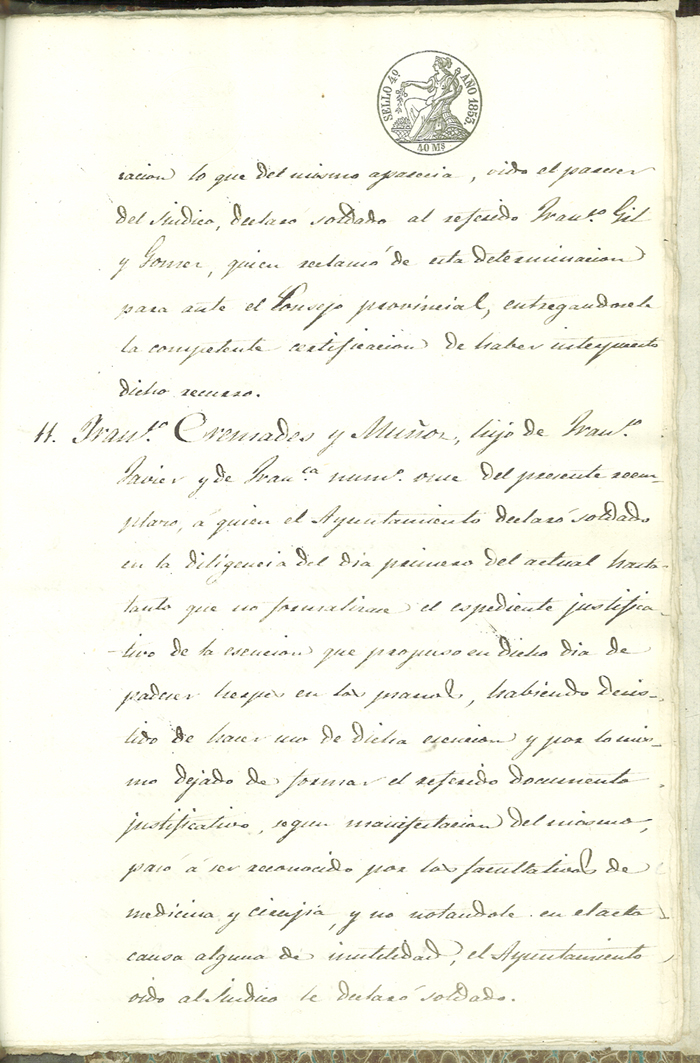 SELLO 4º AÑO 1855.
40 Ms
racion lo que del mismo aparecia, oido el parecer
del Sindico, declaró soldado al referido Franco. Gil
y Gomez, quien reclamó de esta determinacion
para ante el Consejo provincial, entregandosele
la competente certificacion de haber interpuesto
dicho recurso.
11. Franco. Cremades y Muñoz, hijo de Franco.
Javier y de Franca. numo. once del presente reem-
plazo, á quien el Ayuntamiento declaró soldado
en la diligencia del dia primero del actual hasta
tanto que no formalizase el espediente justifica-
tivo de la esencion que propuso en dicho dia de
padecer herpes en las piernas, habiendo desis-
tido de hacer uso de dicha esencion y por lo mis-
mo dejado de formar el referido documento
justificativo, segun manifestacion del mismo,
pasó á ser reconocido por los facultativos de
medicina y cirujia, y no notandole en el acto
causa alguna de inutilidad, el Ayuntamiento
oido al Sindico le declaró soldado.